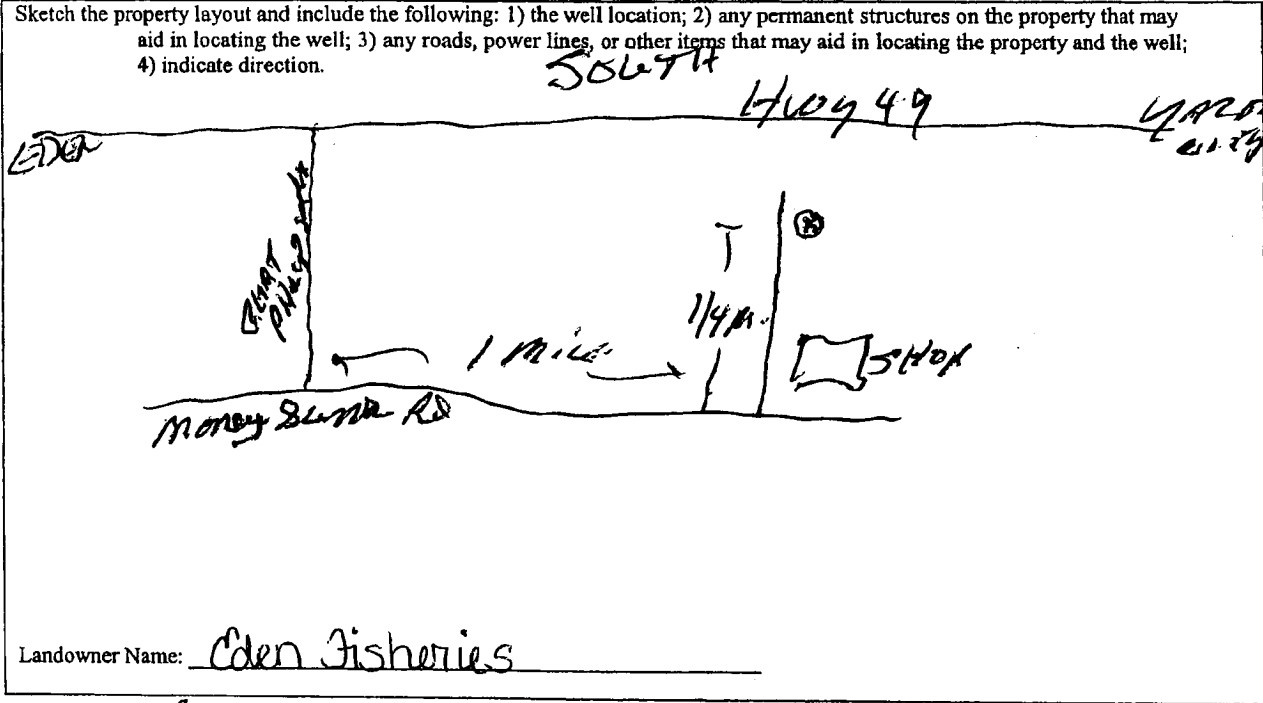 Sketch the property layout and include the following: 1) the well location; 2) any permanent structures on the property that may
aid in locating the well; 3) any roads, power lines, or other items that may aid in locating the property and the well;
4) indicate direction.
SOUTH
Hwy 49
EDEN
1/4 M.
1 Mile
SHOP
Money Rd
Landowner Name: Eden Fisheries